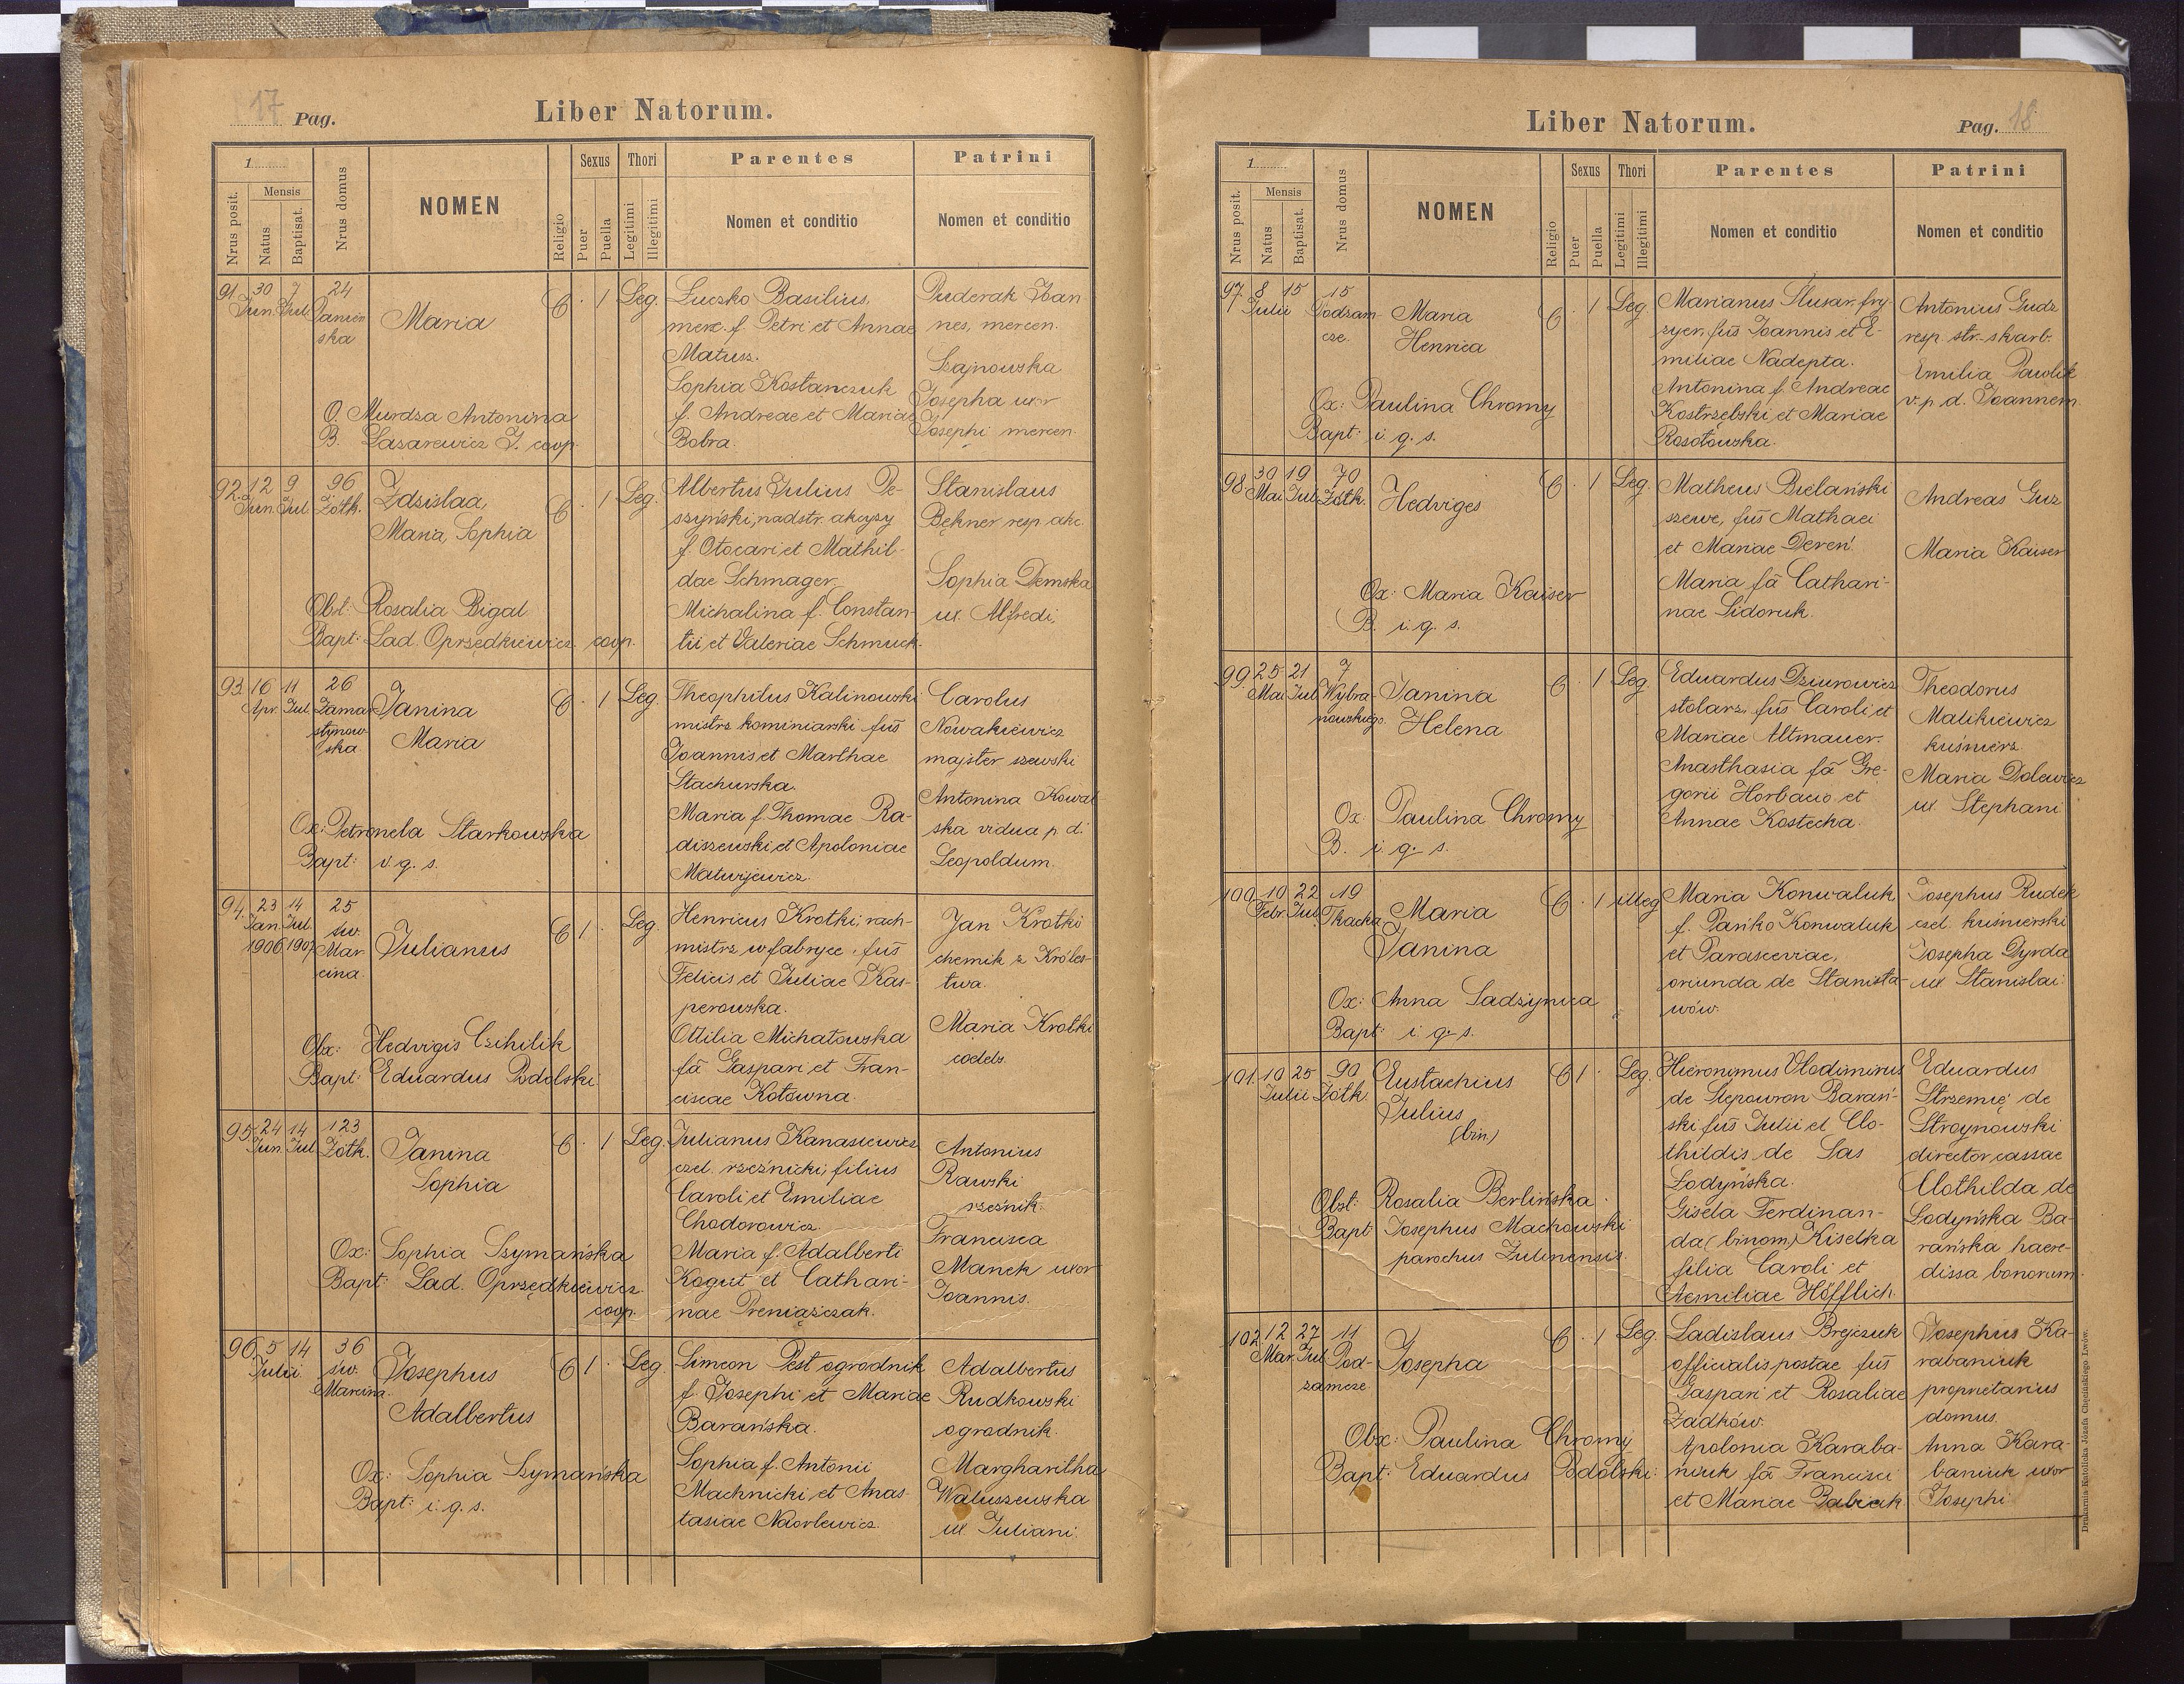 17 Pag.
Liber Natorum.
1
Nrus posit.
Mensis
Natus
Baptisat.
Nrus domus
NOMEN
Religio
Sexus
Puer
Puella
Thori
Legitimi
Illegitimi
Parentes
Nomen et conditio
Patrini
Nomen et conditio
91. 30 7 24
Jun. Jul.
ska
Maria
C. 1 Leg.
O. Murdza Antonina
B. Lazarewicz J. coop.
Luczko Basilius,
merc. f. Petri et Annae
Matusz.
Sophia Kostanczuk
f. Andreae et Mariae
Bobra.
Puderak Joan
nes, mercen.
Josepha uxor
Josephi mercen.
92. 12 9 96
Jun. Jul. Żółk.
Zdzislaa,
Maria, Sophia
C. 1 Leg.
Obst: Rosalia Bigal
Bapt: Lad. Oprzędkiewicz coop.
Albertus Julius De-
szyński, nadstr. akcyzy
f. Otocari et Mathil-
dae Schmager.
Michalina f. Constan-
tii et Valeriae Schmuck.
Stanislaus
resp. akc.
Sophia Demska
ux. Alfredi,
93. 16 11 26
Apr. Jul. Zama
stynow
ska
Janina
Maria
C. 1 Leg.
Ox: Petronela Starkowska
Bapt: i. q. s.
Theophilus Kalinowski
mistrz kominiarski fus
Joannis et Marthae
Stachurska.
Maria f. Thomae Ra-
diszewski et Apoloniae
Matwijewicz.
Carolus
Nowakiewicz
majster szewski
Antonina Kowal
ska vidua p. d.
Leopoldum.
94. 23 14 25
Jan. Jul. św.
1906 1907 Mar
cina.
Julianus
C 1 Leg.
Obx: Hedvigis Czihilik
Bapt: Eduardus Podolski
Henricus Krotki, rach-
mistrz w fabryce, fus
Felicis et Juliae Kas-
perowska.
Ottilia Michałowska
fa Gaspari et Fran-
ciscae Kotówna.
Jan Krotki
chemik z Króles-
twa.
Maria Krotki
coelebs.
95. 24 14 123
Jun. Jul. Żółk.
Janina
Sophia
C. 1 Leg.
Ox: Sophia Szymańska
Bapt: Lad. Oprzędkiewicz
coop.
Julianus Kanasiewicz
czel. rzeźnicki, filius
Caroli et Emiliae
Chodorowicz.
Maria f. Adalberti
Kogut et Cathari-
nae Preniążczak.
Antonius
Rawski
rzeźnik.
Francisca
Manek uxor
Joannis.
96. 5 14 36
Julii św.
Marcina.
Josephus
Adalbertus
C 1 Leg.
Ox: Sophia Szymańska
Bapt: i. q. s.
Simeon Pest ogrodnik
f. Josephi et Mariae
Barańska.
Sophia f. Antonii
Machnicki et Anas-
tasiae Naorlewicz.
Adalbertus
Rudkowski
ogrodnik.
Margharitha
Waluszewska
ux. Juliani.
Liber Natorum.
Pag. 18
1
Nrus posit.
Mensis
Natus
Baptisat.
Nrus domus
NOMEN
Religio
Sexus
Puer
Puella
Thori
Legitimi
Illegitimi
Parentes
Nomen et conditio
Patrini
Nomen et conditio
97. 8 15 15
Julii Podzam-
cze.
Maria
Henrica
C. 1 Leg.
Ox: Paulina Chromy
Bapt: i. q. s.
Marianus Slusar, fry
zyer, fus Joannis et E-
miliae Nadepta.
Antonina f. Andreae
Kostrzębski et Mariae
Rosołowska.
Antonius Gudz
resp. str. skarb.
Emilia Pawlik
v. p. d. Joannem.
98. 30 19 70
Mai Jul. Żółk.
Hedviges
C. 1 Leg.
Ox: Maria Kaiser
B. i. q. s.
Matheus Bielański
szewc, fus Mathaei
et Mariae Dereń.
Maria fa Cathari-
nae Sidoruk.
Andreas Guz
Maria Kaiser
99. 25 21 7
Mai Jul. Wybra-
nowskiego.
Janina
Helena
C. 1 Leg.
Ox: Paulina Chromy
B. i. q. s.
Eduardus Dziurowicz
stolarz, fus Caroli et
Mariae Altmauer.
Anasthasia fa Gre-
gorii Horbacio et
Annae Kostecka.
Theodorus
Malikiewicz
kuśnierz.
Maria Dolewicz
ux. Stephani.
100. 10 22 19
Febr. Jul. Tkacka
Maria
Janina
C. 1 illeg
Ox: Anna Sadzynica
Bapt: i. q. s.
Maria Konwaluk
f. Pańko Konwaluk
et Parasceviae,
oriunda de Stanisła-
wów.
Josephus Rudek
czel. kuśnierski
Josepha Dyrda
ux. Stanislai.
101. 10 25 90
Julii Żółk.
Eustachius
Julius
(bin.)
C 1 Leg.
Obst: Rosalia Berlińska.
Bapt: Josephus Machowski
parochus Zulinensis.
Hieronymus Vlodimirus
de Slepowron Barań-
ski fus Julii et Clo-
thildis de Sas
Łodyńska.
Gisela Ferdinan-
da (binom.) Kiselka
filia Caroli et
Aemiliae Höfflich.
Eduardus
Strzemię de
Stroynowski
director cassae
Clothilda de
Łodyńska Ba-
rańska haere-
dissa bonorum.
102. 12 27 11
Mar. Jul. Pod-
zamcze
Josepha
C. 1 Leg.
Obx: Paulina Chromy
Bapt: Eduardus Podolski.
Ladislaus Brejczuk
officialis postae fus
Gaspari et Rosaliae
Żadków.
Apolonia Karaba-
niuk fa Francisci
et Mariae Babiak
Josephus Ka-
rabaniuk
proprietarius
domus.
Anna Kara-
baniuk uxor
Josephi
Drukarnia Katolicka Józefa Chęcińskiego Lwów.